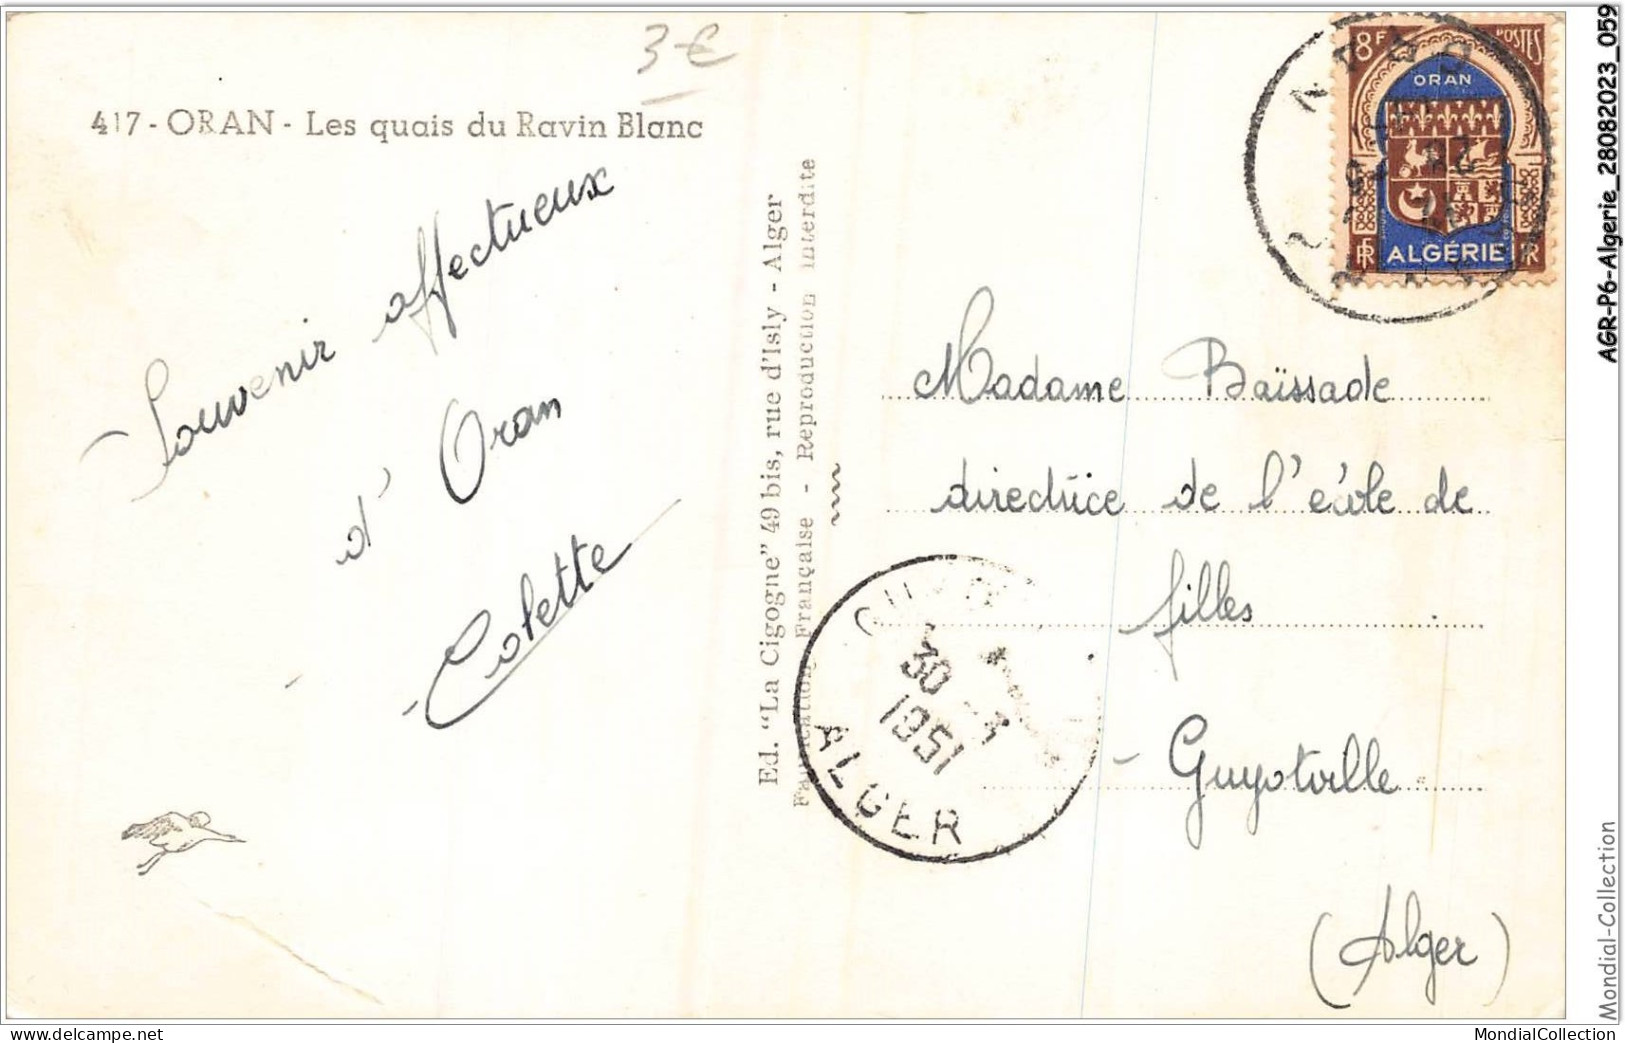 3 €
417 - ORAN - Les quais du Ravin Blanc
Souvenir affectueux
d'Oran
Colette
Ed. "La Cigogne" 49 bis, rue d'Isly - Alger
Fabrication Française - Reproduction interdite
8F POSTES
ORAN
ALGÉRIE
RF
Madame Baïssade
directrice de l'école de
filles
- Guyotville
(Alger)
30 - 3
1951
ALGER
AGR-P6-Algerie_28082023_059
Mondial-Collection
www.delcampe.net
MondialCollection